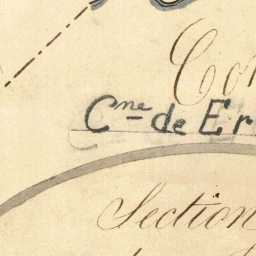 Co
Cne de Er
Section